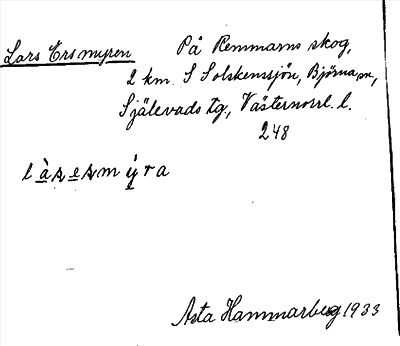 Lars Ersmyren
På Remmarns skog,
2 km S Solskenssjön, Björna sn,
Själevads tg, Västernorrl. l.
248
l à s e s m ý r a
Asta Hammarberg 1933